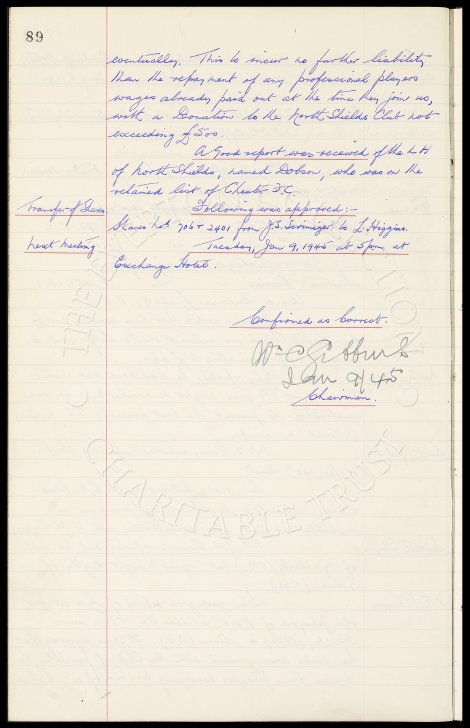 89
eventually. This to incur no further liability
than the repayment of any professional players
wages already paid out at the time they join us,
with a Donation to the North Shields Club not
exceeding £500.
A Good report was received of the L.H
of North Shields, named Dobson, who was on the
retained list of Chester F.C.
Transfer of Shares. Following was approved:-
Shares Nos 706 & 2401 from J.S. to L. Higgins.
Next Meeting Tuesday, Jan 9, 1945 at 5pm at
Exchange Hotel.
Confirmed as Correct.
Wm C Gibbins
Jan 9/45
Chairman.
CHARITABLE TRUST